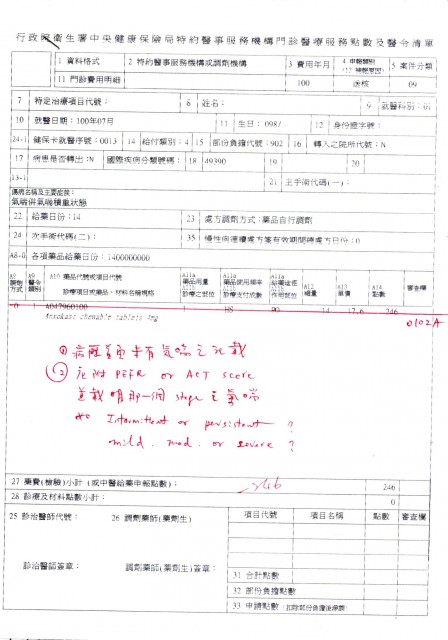 行政院衛生署中央健康保險局特約醫事服務機構門診醫療服務點數及醫令清單
1 資料格式 2 特約醫事服務機構或調劑機構 3 費用年月 4 申報類別 5 案件分類
11 門診費用明細 100 送核 09
7 特定治療項目代號： 8 姓名： 9 就醫科別：01
10 就醫日期：100年07月 11 生日：098/ 12 身份證字號：
24-1 健保卡就醫序號：0013 14 給付類別：4 15 部份負擔代號：902 16 轉入之院所代號：N
17 病患是否轉出：N 國際疾病分類號碼：18 49390 19 20
13-1 21 主手術代碼(一)：
傷病名稱及主要症狀：
氣喘併氣喘積重狀態
22 給藥日份：14 23 處方調劑方式：藥品自行調劑
24 次手術代碼(二)： 35 慢性病連續處方箋有效期間總處方日份：0
A8-0 各項藥品給藥日份：1400000000
A8 調劑方式 A9 醫令類別 A10 藥品代號或項目代號 診療項目或藥品、材料名稱規格 A11a 藥品用量 A11b 診療之部位 A11a 藥品使用頻率 A11b 診療支付成數 A11a 給藥途徑 A11b 作用部位 A12 總量 A13 單價 A14 點數 審查欄
0 1 A047960100 1 HS PO 14 17.6 246
Ansokast chewable tablets 4mg
0102A
① 病歷首頁未有氣喘之記載
② 應附 PEFR or ACT score
並載明那一個 stage 之氣喘
Intermittent or persistent ?
mild, mod. or severe ?
27 藥費(檢驗)小計 (或中醫給藥申報點數)： 246 246
28 診療及材料點數小計： 0
25 診治醫師代號： 26 調劑藥師(藥劑生) 項目代號 項目名稱 點數 審查欄
診治醫師簽章： 調劑藥師(藥劑生)簽章：
31 合計點數
32 部份負擔點數
33 申請點數 (扣除部分負擔後淨額)